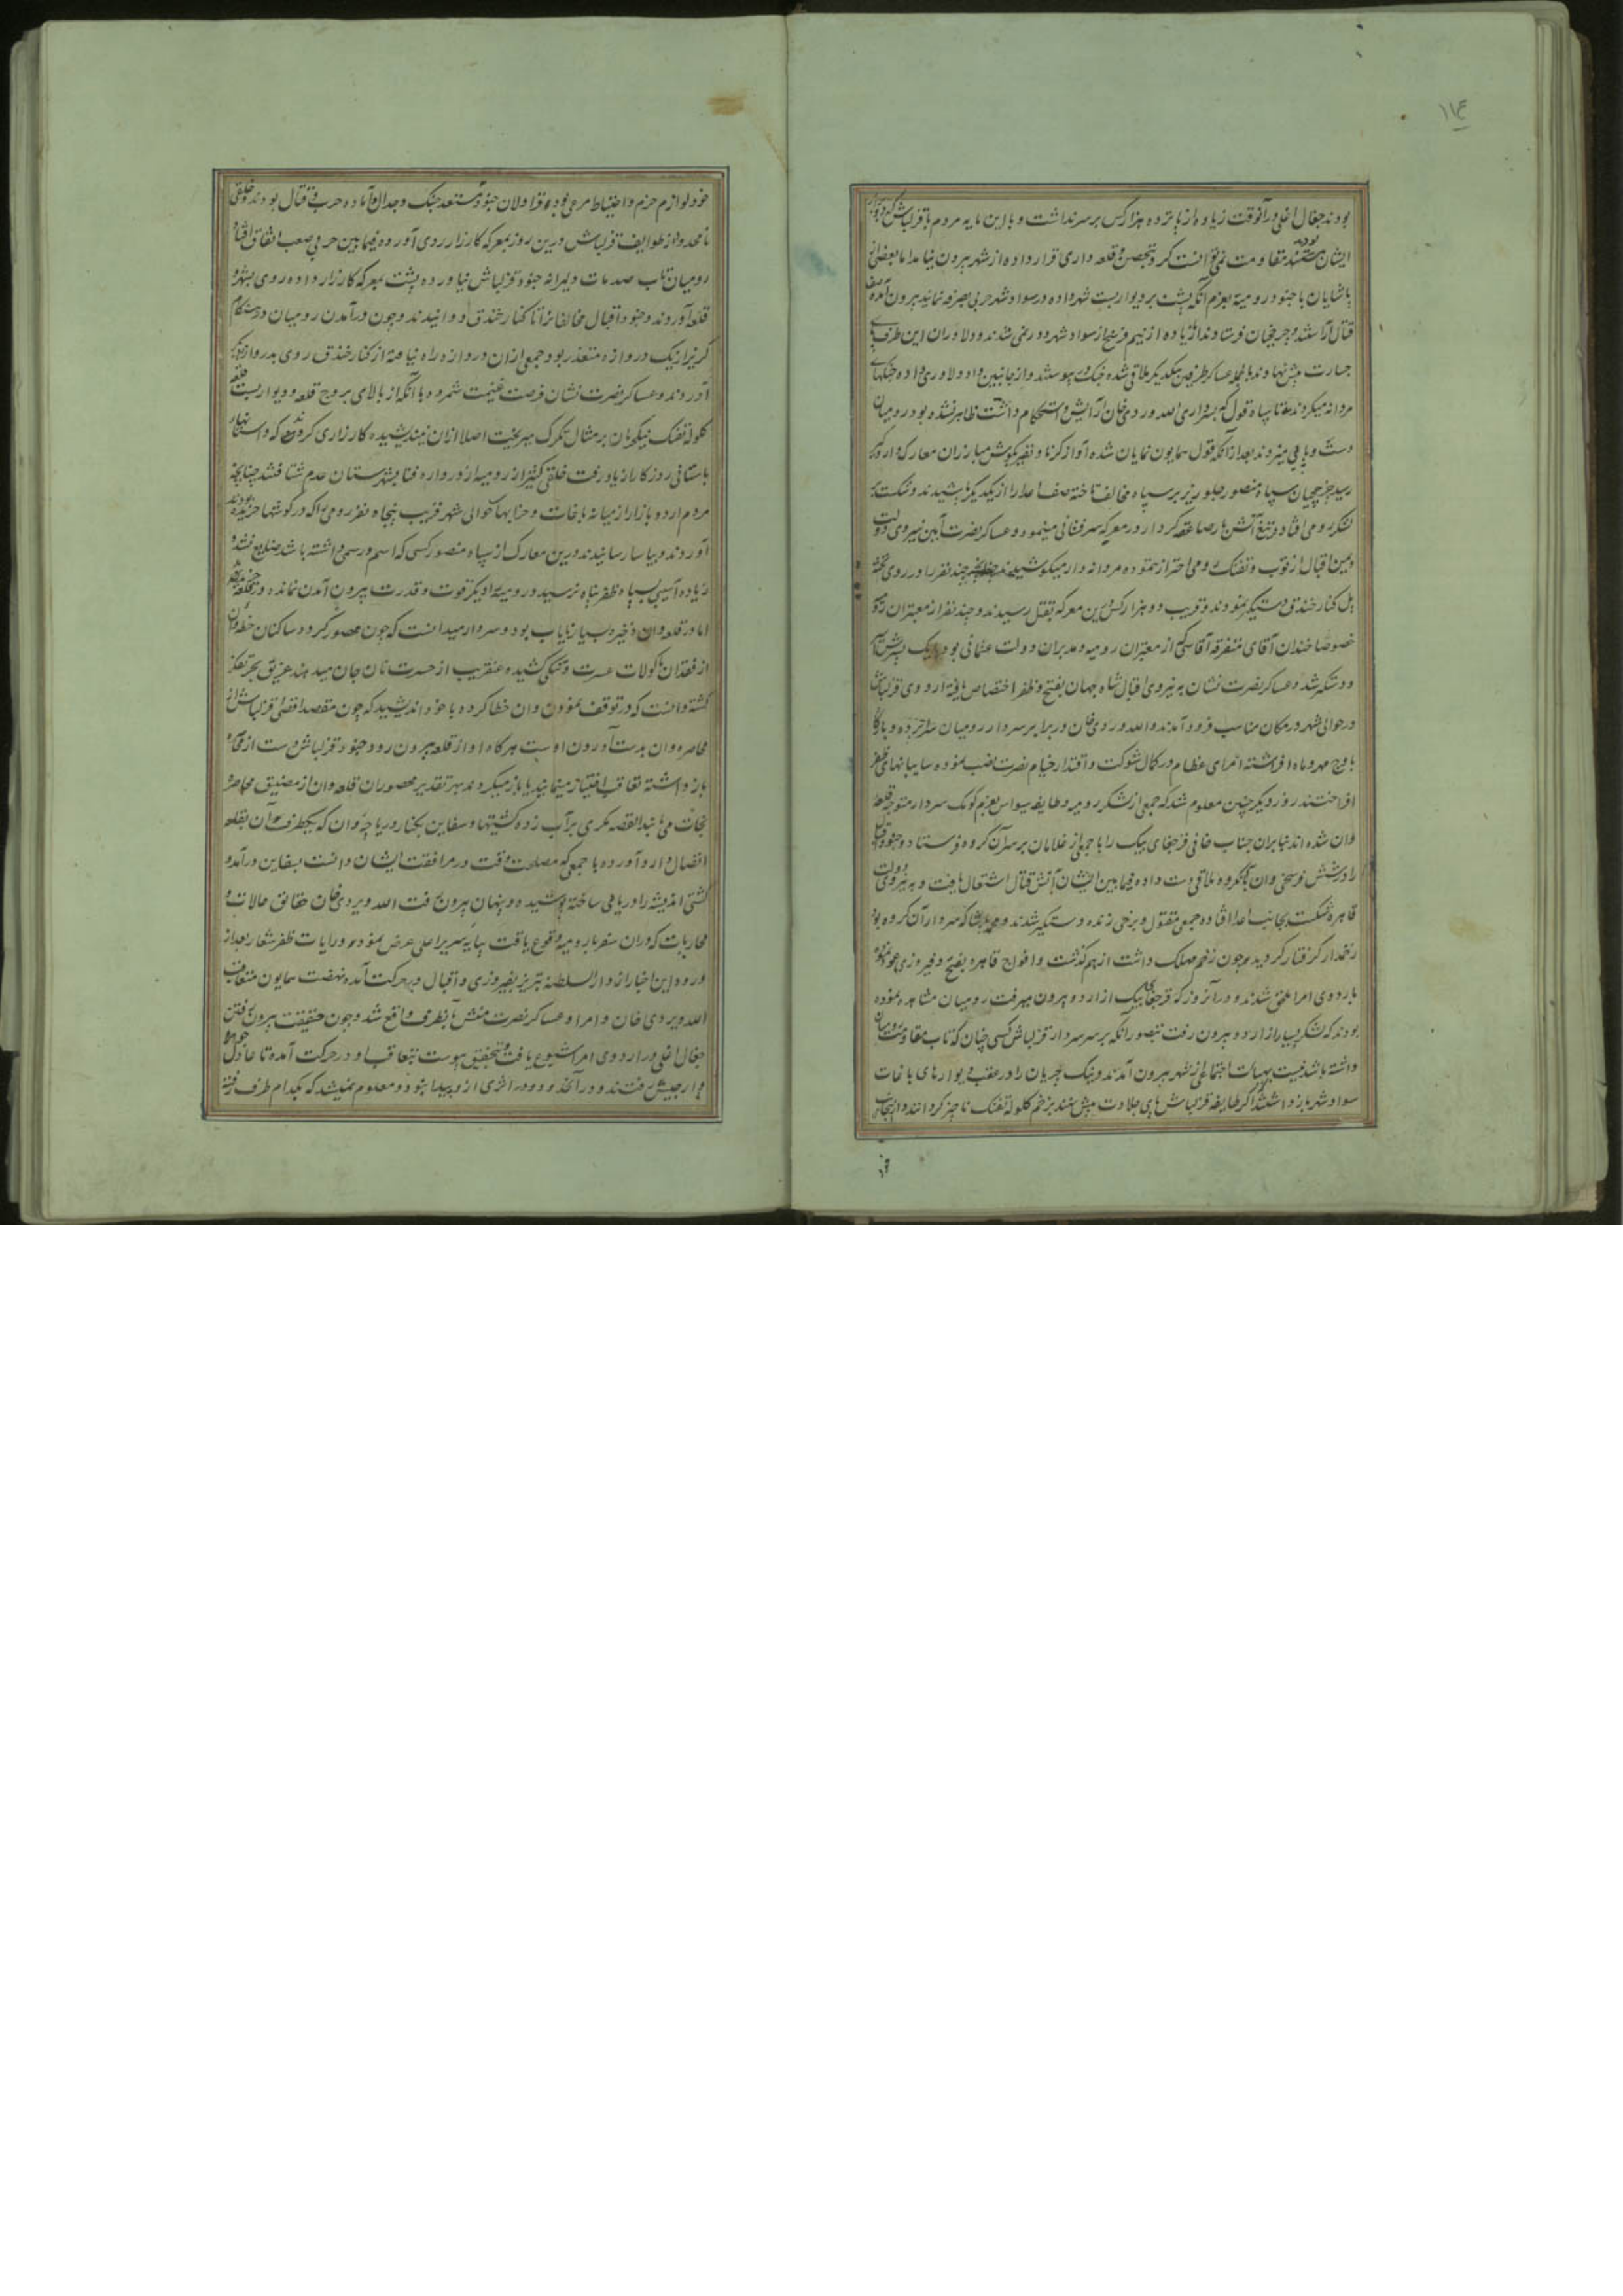 ١١٤
بودند جغال اغلی در آنوقت زیاده از پانزده هزار کس بر سر نداشت و با این مایه مردم با قزلباش که
ایشان مقاومت نمی توانست کرد بتحصن و قلعه داری قرار داده از شهر بیرون نیامد اما بعضی از
پاشایان با جنود رومیه بعزم آنکه پشت بر دیوار بست شهر داده در سواد شهر حربی بصرفه نمایند بیرون آمده صف
قتال آراستند و چرخچیان فرستادند اما زیاده از نیم فرسخ از سواد شهر دور نمی شدند و دلاوران این طرف پای
جسارت پیش نهادند بالجمله عساکر طرفین بیکدیگر ملاقی شده جنک در پیوستند و از جانبین داد دلاوری داده جنکهای
مردانه میکردند تا سپاه قول که بسرداری الله وردی خان آرایش و استحکام داشت ظاهر نشده بود رومیان
دست و پایی میزدند بعد از آنکه قول همایون نمایان شده آواز کرنا و نفیر بکوش مبارزان معارک دار و کیر
رسید چرخچیان سپاه منصور جلوریز بر سپاه مخالف تاخته صف اعدا را از یکدیگر پاشیدند و شکست بر
لشکر رومی افتاد و تیغ آتش بار صاعقه کردار در معرکه سرفشانی مینمود و عساکر نصرت آیین نیروی دولت
و یمن اقبال از توپ و تفنک رومی احتراز ننموده مردانه وار میکوشیدند چند نفر را در روی تخته
پل کنار خندق دستکیر نمودند و قریب دو هزار کس درین معرکه بقتل رسیدند و چند نفر از معتبران رومیه
خصوصا خندان آقای متفرقه آقاسی که از معتبران رومیه و مدبران دولت عثمانی بود
و دستکیر شد و عساکر نصرت نشان به نیروی اقبال شاه جهان بفتح و ظفر اختصاص یافته اردوی قزلباش
در حوالی شهر در مکان مناسب فرود آمدند و الله وردی خان در برابر سردار رومیان سراپرده و بارگاه
باوج مهر و ماه افراشته امرای عظام در کمال شوکت و اقتدار خیام نصرت نصب نموده سایبانهای ظفر
افراختند روز دیگر چنین معلوم شد که جمعی از لشکر رومیه و طایفه سیواس بعزم کومک سردار متوجه قلعه
وان شده اند بنابران جناب خانی قرجغای بیک را با جمعی از غلامان بر سر آن کروه فرستاد و جنود قزلباش
را در شش فرسخی وان بآنکروه ملاقی دست داده فیما بین ایشان آتش قتال اشتعال یافت و به نیروی دولت
قاهره شکست بجانب اعدا افتاده جمعی مقتول و برخی زنده دستکیر شدند و محمد پاشا که سردار آن کروه بود
زخمدار کرفتار کردید و چون زخم مهلک داشت از هم گذشت و افواج قاهره بفتح و فیروزی عود نموده
باردوی امرا ملحق شدند و در آنروز که قرجغای بیک از اردو بیرون میرفت رومیان مشاهده نموده
بودند که لشکر بسیار از اردو بیرون رفت بتصور آنکه بر سر سردار قزلباش کسی چنان که تاب مقاومت ایشان
داشته باشد نیست بهیأت اجتماعی از شهر بیرون آمدند و ینک چریان را در عقب دیوارهای باغات
سواد شهر باز داشتند که اگر طایفه قزلباش پای جلادت پیش نهند بزخم کلوله تفنک ناچیز کردانند و از اینجانب
خود لوازم حزم و احتیاط مرعی بوده قراولان جنود مستعد جنک و جدال و آماده حرب و قتال بودند خلقی
نامعدود از طوایف قزلباش درین روز بمعرکه کارزار روی آورده فیما بین حربی صعب اتفاق افتاد
رومیان تاب صدمات دلیرانه جنود قزلباش نیاورده پشت بمعرکه کارزار داده روی بشهر و
قلعه آوردند و جنود اقبال مخالفانرا تا کنار خندق دوانیدند و چون درآمدن رومیان در هنکام
کریز از یک دروازه متعذر بود جمعی از آن دروازه راه نیافته از کنار خندق روی بدروازه دیگر
آوردند و عساکر نصرت نشان فرصت غنیمت شمرده با آنکه از بالای بروج قلعه و دیوار بست قلعه
کلوله تفنک ینکچریان بر مثال تکرک میریخت اصلا از آن نیندیشیده کارزاری کردند که داستانهای
باستانی روزکار از یاد رفت خلقی کثیر از رومیه از دروازه فنا بشهرستان عدم شتافتند چنانچه
مردم اردو بازار از میانه باغات و خیابانها حوالی شهر قریب پنجاه نفر رومی را که در کوشها خزیده بودند
آوردند و بیاسا رسانیدند و درین معارک از سپاه منصور کسی که اسم و رسمی داشته باشد ضایع نشد و
زیاده آسیبی بسپاه ظفر پناه نرسید و رومیه را دیگر قوت و قدرت بیرون آمدن نمانده در قلعه خزیدند
اما در قلعه وان ذخیره بسیار نایاب بود و سردار میدانست که چون محصور کردد ساکنان خطه وان
از فقدان ماکولات عسرت و تنکی کشیده عنقریب از حسرت نان جان میدهند غریق بحر تفکر
کشته دانست که در توقف نمودن وان خطا کرده با خود اندیشید که چون مقصد اقصی قزلباش از
محاصره وان بدست آوردن اوست هرکاه او از قلعه بیرون رود جنود قزلباش دست از محاصره
باز داشته تعاقب اختیار مینمایند یا باز میگردند بهر تقدیر محصوران قلعه وان از مضیق محاصره
نجات می یابند القصه مکری بر آب زده کشتیها و سفاین بکنار دریاچه وان که یکطرف آن بقلعه
اتصال دارد آورده با جمعی که مصلحت وقت در مرافقت ایشان دانست بسفاین درآمده
کشتی اندیشه را دریایی ساخته پوشیده و پنهان بیرون رفت الله ویردی خان حقایق حالات و
محاربات که در آن سفر با رومیه وقوع یافت بپایه سریر اعلی عرض نموده و رایات ظفر شعار بعد از
ورود این اخبار از دار السلطنه تبریز بفیروزی و اقبال در حرکت آمده نهضت همایون متعاقب
الله ویردی خان و امرا و عساکر نصرت منش بآنطرف واقع شد و چون حقیقت بیرون رفتن
جغال اغلی در اردوی امرا شیوع یافت و بتحقیق پیوست بتعاقب او در حرکت آمده تا عادل
و ارجیش رفتند و در آنحدود اثری از و پیدا نبود و معلوم نمیشد که بکدام طرف رفته